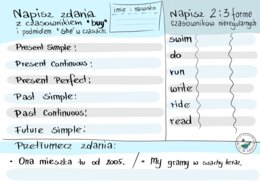 Napisz zdania
z czasownikiem "buy"
i podmiotem "she" w czasach:
imię i nazwisko
Present Simple:
Present Continuous:
Present Perfect:
Past Simple:
Past Continuous:
Future Simple:
Napisz 2 i 3 formę
czasowników nieregularnych
swim
do
run
write
ride
read
Przetłumacz zdania:
• Ona mieszka tu od 2005. / • My gramy w szachy teraz.